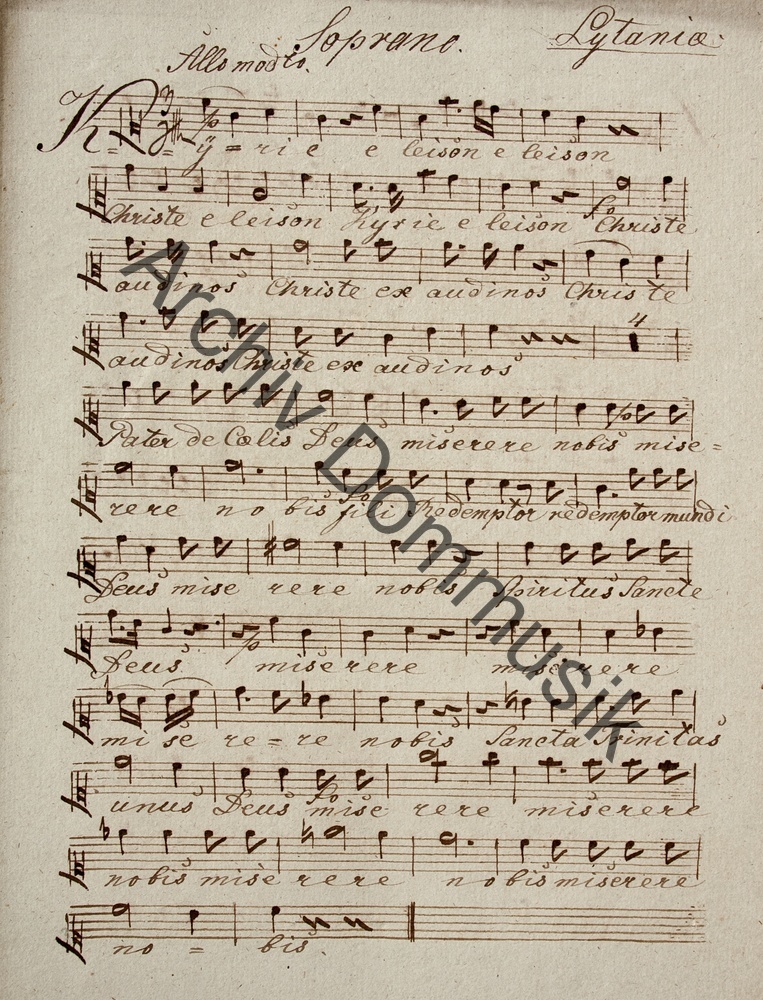 Soprano. Lytaniæ
Allo modto.
Ky = rie e leison e leison
Christe e leison Kyrie e leison Christe
audinos Christe ex audinos Christe
audinos Christe ex audinos
4
Pater de Cœlis Deus miserere nobis mise =
rere nobis fili Redemptor redemptor mundi
Deus mise rere nobis Spiritus Sancte
Deus miserere miserere
mi se re = re nobis Sancta Trinitas
unus Deus mise rere miserere
nobis mise rere nobis miserere
no = bis.
Archiv Dommusik